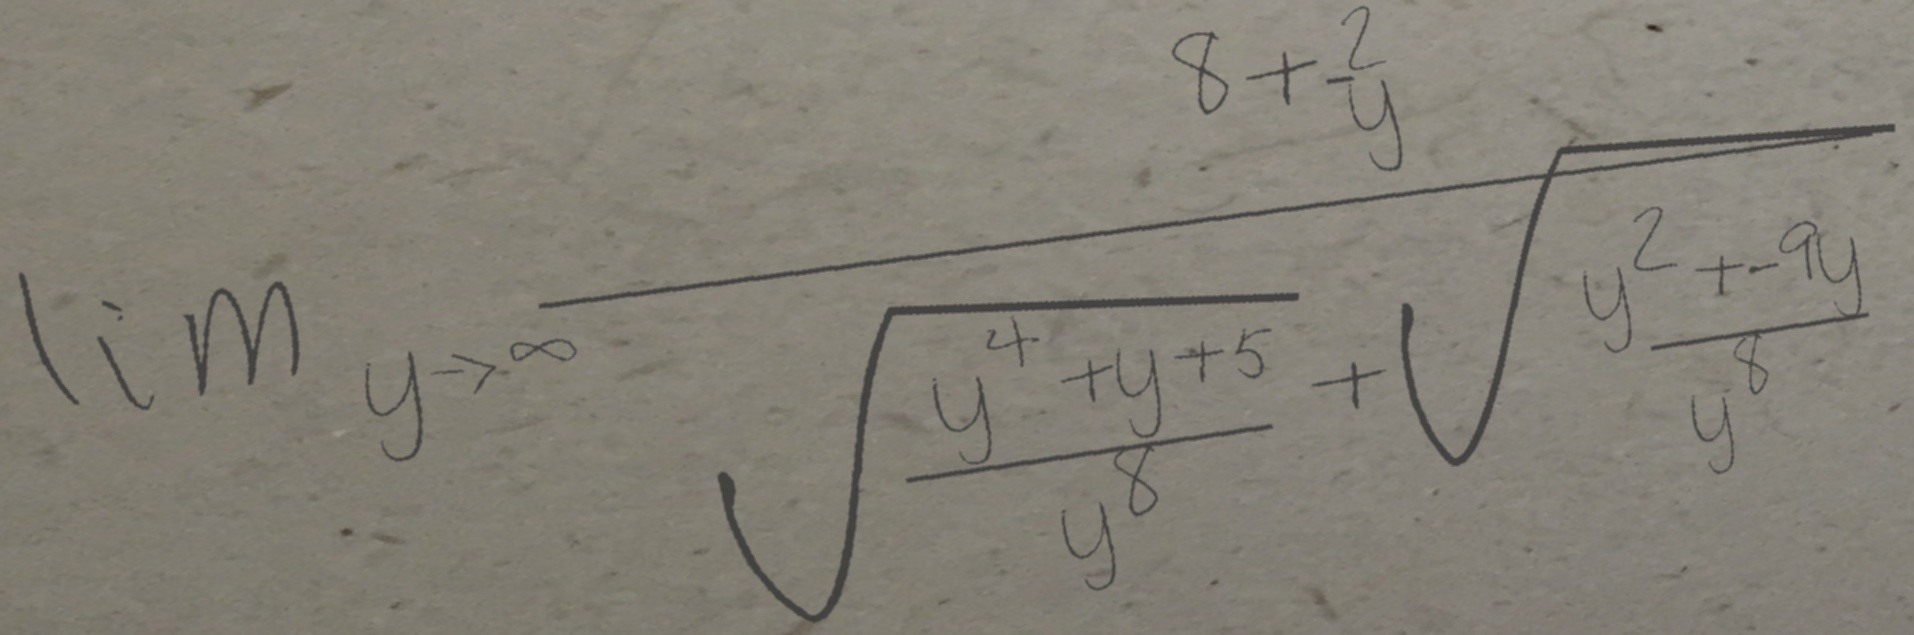 \lim_{y \to \infty} \frac{8 + \frac{2}{y}}{\sqrt{\frac{y^4 + y + 5}{y^8}} + \sqrt{\frac{y^2 + -9y}{y^8}}}